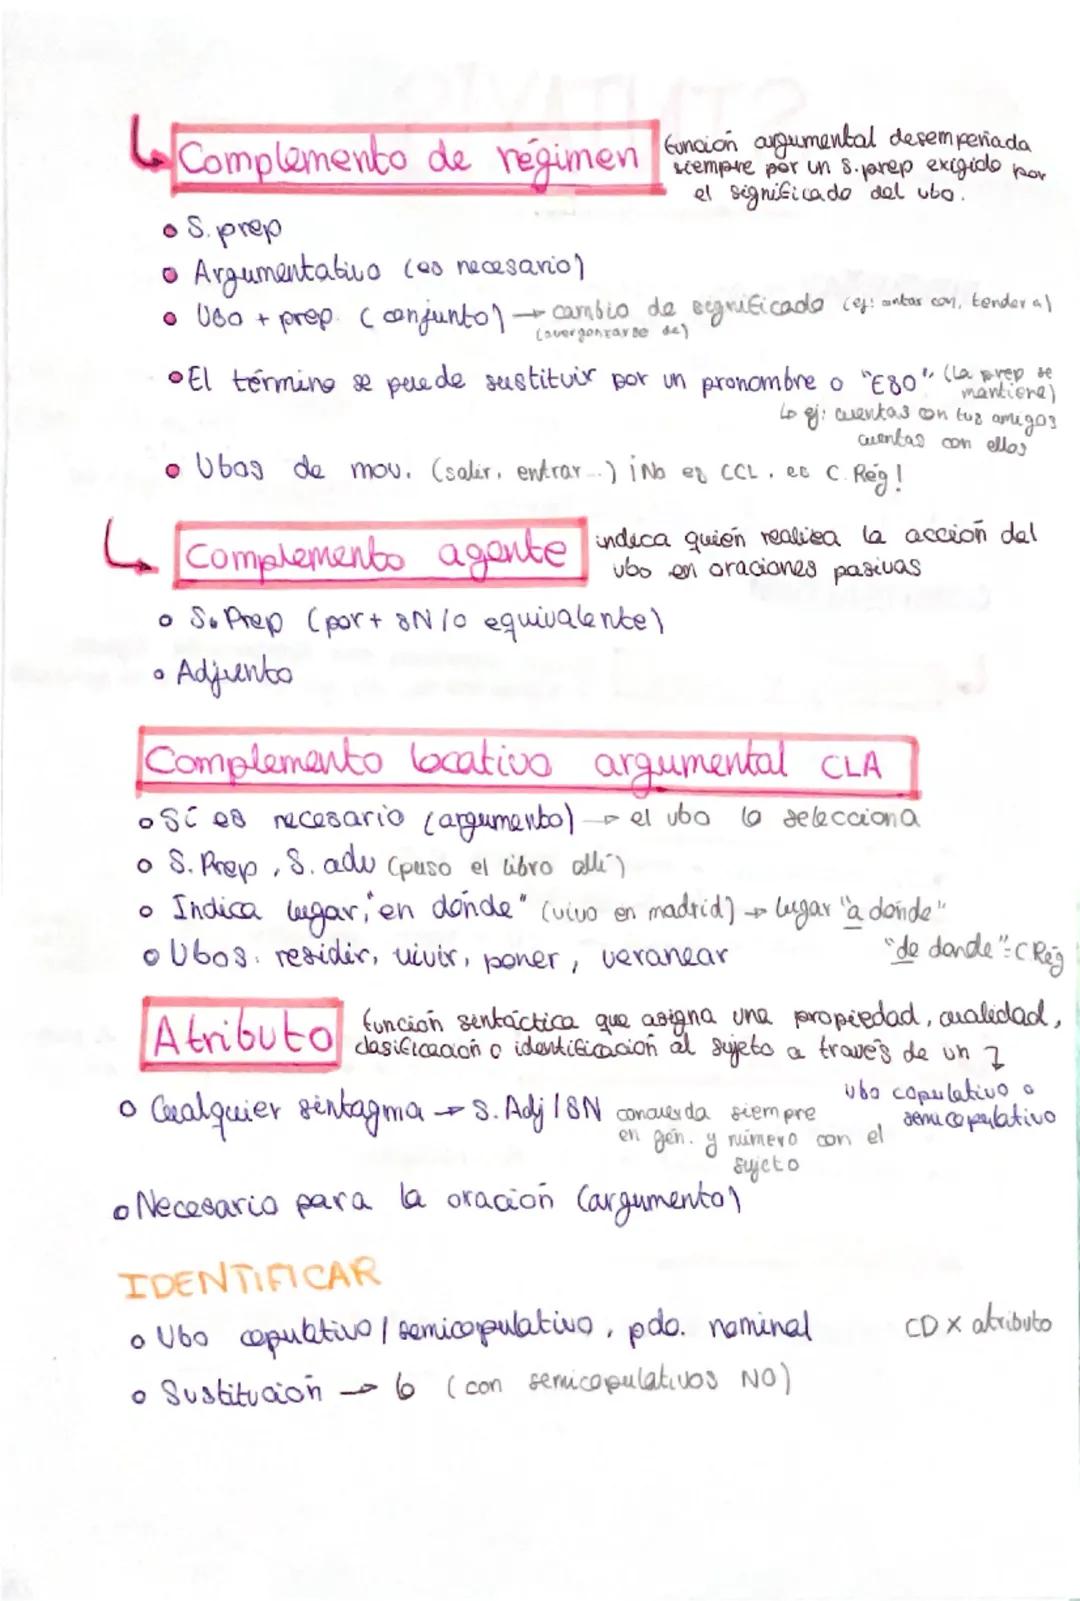 Complemento de régimen función argumental desempeñada
siempre por un S.prep exigido por
el significado del vbo.
• S. prep
• Argumentativo (es necesario)
• Vbo + prep. (conjunto) → cambio de significado (ej: contar con, tender a)
(avergonzarse de)
• El término se puede sustituir por un pronombre o "ESO" (La prep se
mantiene)
↳ ej: cuentas con tus amigos
cuentas con ellos
• Vbos de mov. (salir, entrar...) ¡No es CCL, es C. Rég!
Complemento agente indica quién realiza la acción del
vbo en oraciones pasivas
• S. Prep (por + SN / o equivalente)
• Adjunto
Complemento locativo argumental CLA
• Sí es necesario (argumento) → el vbo lo selecciona
• S. Prep, S. adv (puso el libro allí)
• Indica lugar "en dónde" (vivo en madrid) → lugar "a dónde"
• Vbos: residir, vivir, poner, veranear "de donde" = C. Rég
Atributo función sintáctica que asigna una propiedad, cualidad,
clasificación o identificación al sujeto a través de un
vbo copulativo o
semicopulativo
• Cualquier sintagma → S. Adj / SN concuerda siempre
en gén. y número con el
sujeto
• Necesario para la oración (argumento)
IDENTIFICAR
• Vbo copulativo / semicopulativo, pdo. nominal CD X atributo
• Sustitución → lo (con semicopulativos NO)